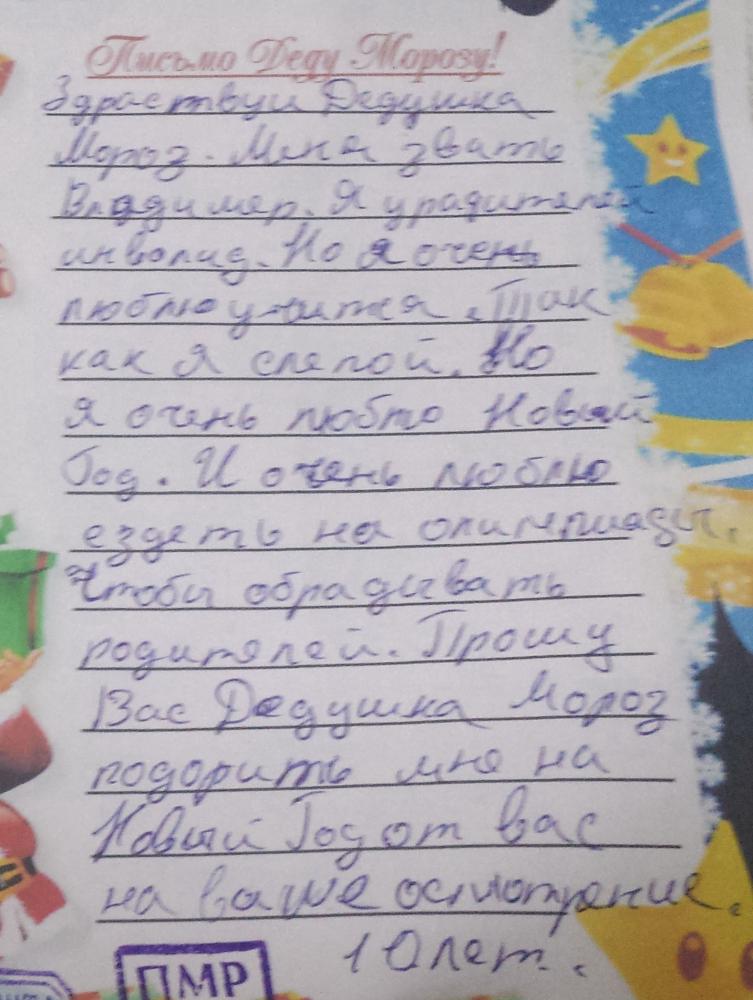 Письмо Деду Морозу!
Здраствуй Дедушка
Мороз. Меня звать
Владимер. Я у радителей
инволид. Но я очень
люблю учится. Так
как я слепой. Но
я очень люблю Новый
Год. И очень люблю
ездеть на олимпиады.
Чтобы обрадывать
родителей. Прошу
Вас Дедушка Мороз
подорить мне на
Новый Год от вас
на ваше осмотрение.
10 лет.
ПМР